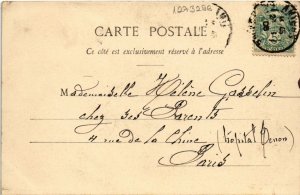 1273266
CARTE POSTALE
Ce côté est exclusivement réservé à l'adresse
Mademoiselle Hélène Gasselin
chez ses Parents
4 rue de la Chine (hôpital Tenon)
Paris